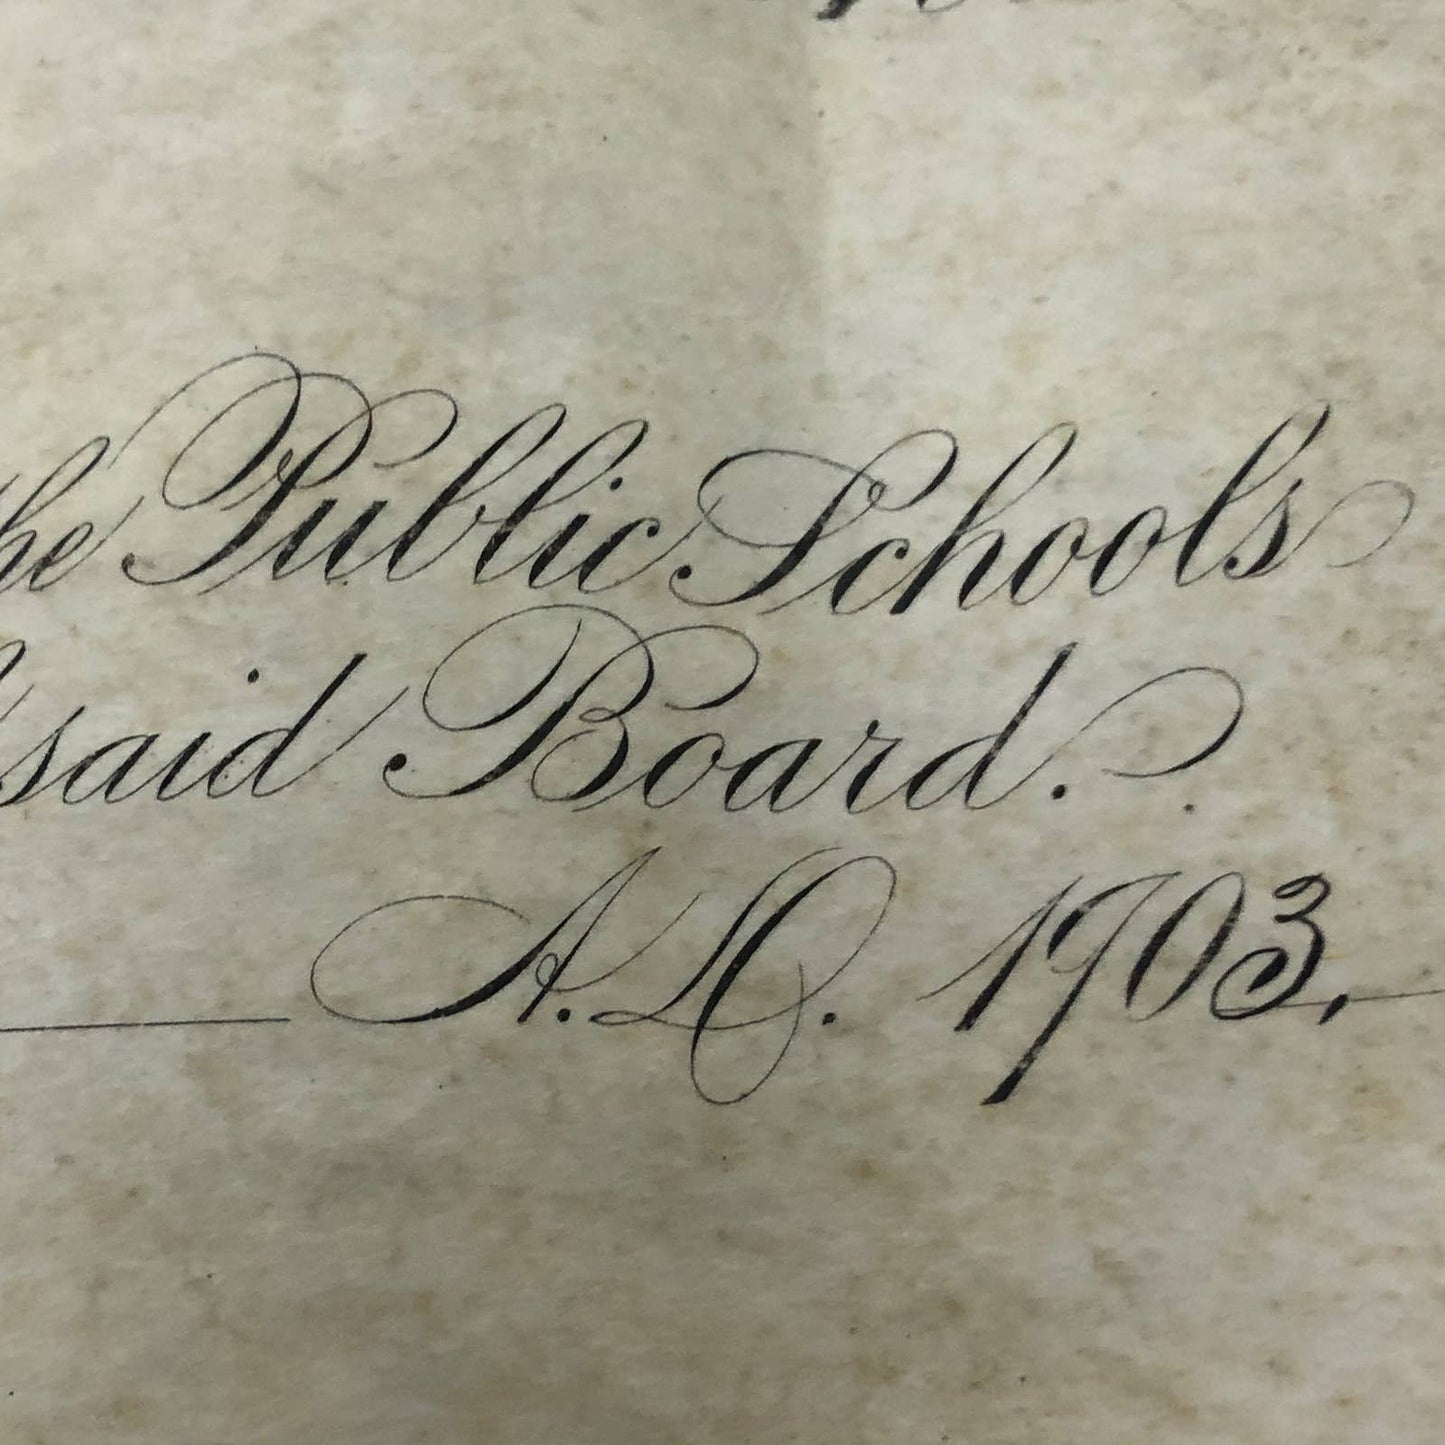 the Public Schools
said Board.
A.D. 1903,